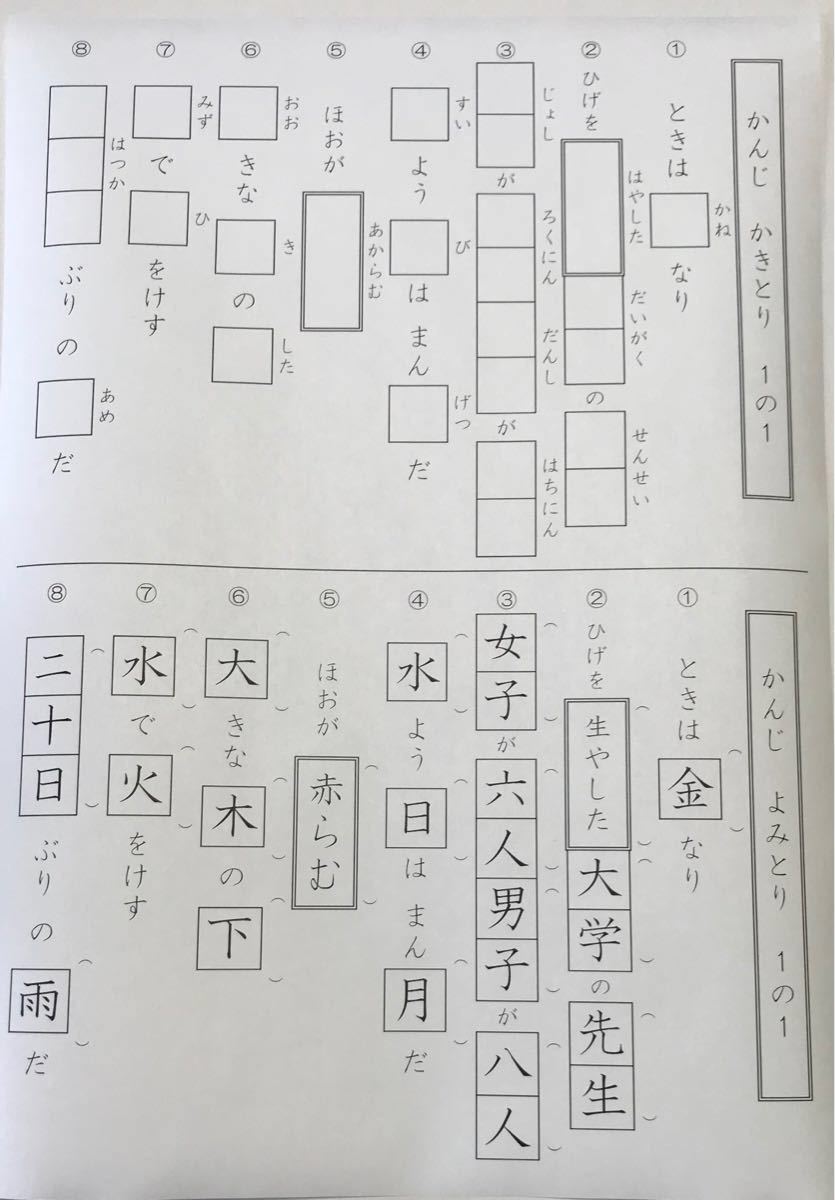 かんじ かきとり 1の1
① ときは なり
かね
② ひげを の
はやした だいがく せんせい
③ が が
じょし ろくにん だんし はちにん
④ よう は まん だ
すい び げつ
⑤ ほおが
あからむ
⑥ きな の
おお き した
⑦ で をけす
みず ひ
⑧ ぶりの だ
はつか あめ
かんじ よみとり 1の1
① ときは金なり
② ひげを生やした大学の先生
③ 女子が六人男子が八人
④ 水よう日は まん月だ
⑤ ほおが赤らむ
⑥ 大きな木の下
⑦ 水で火をけす
⑧ 二十日ぶりの雨だ